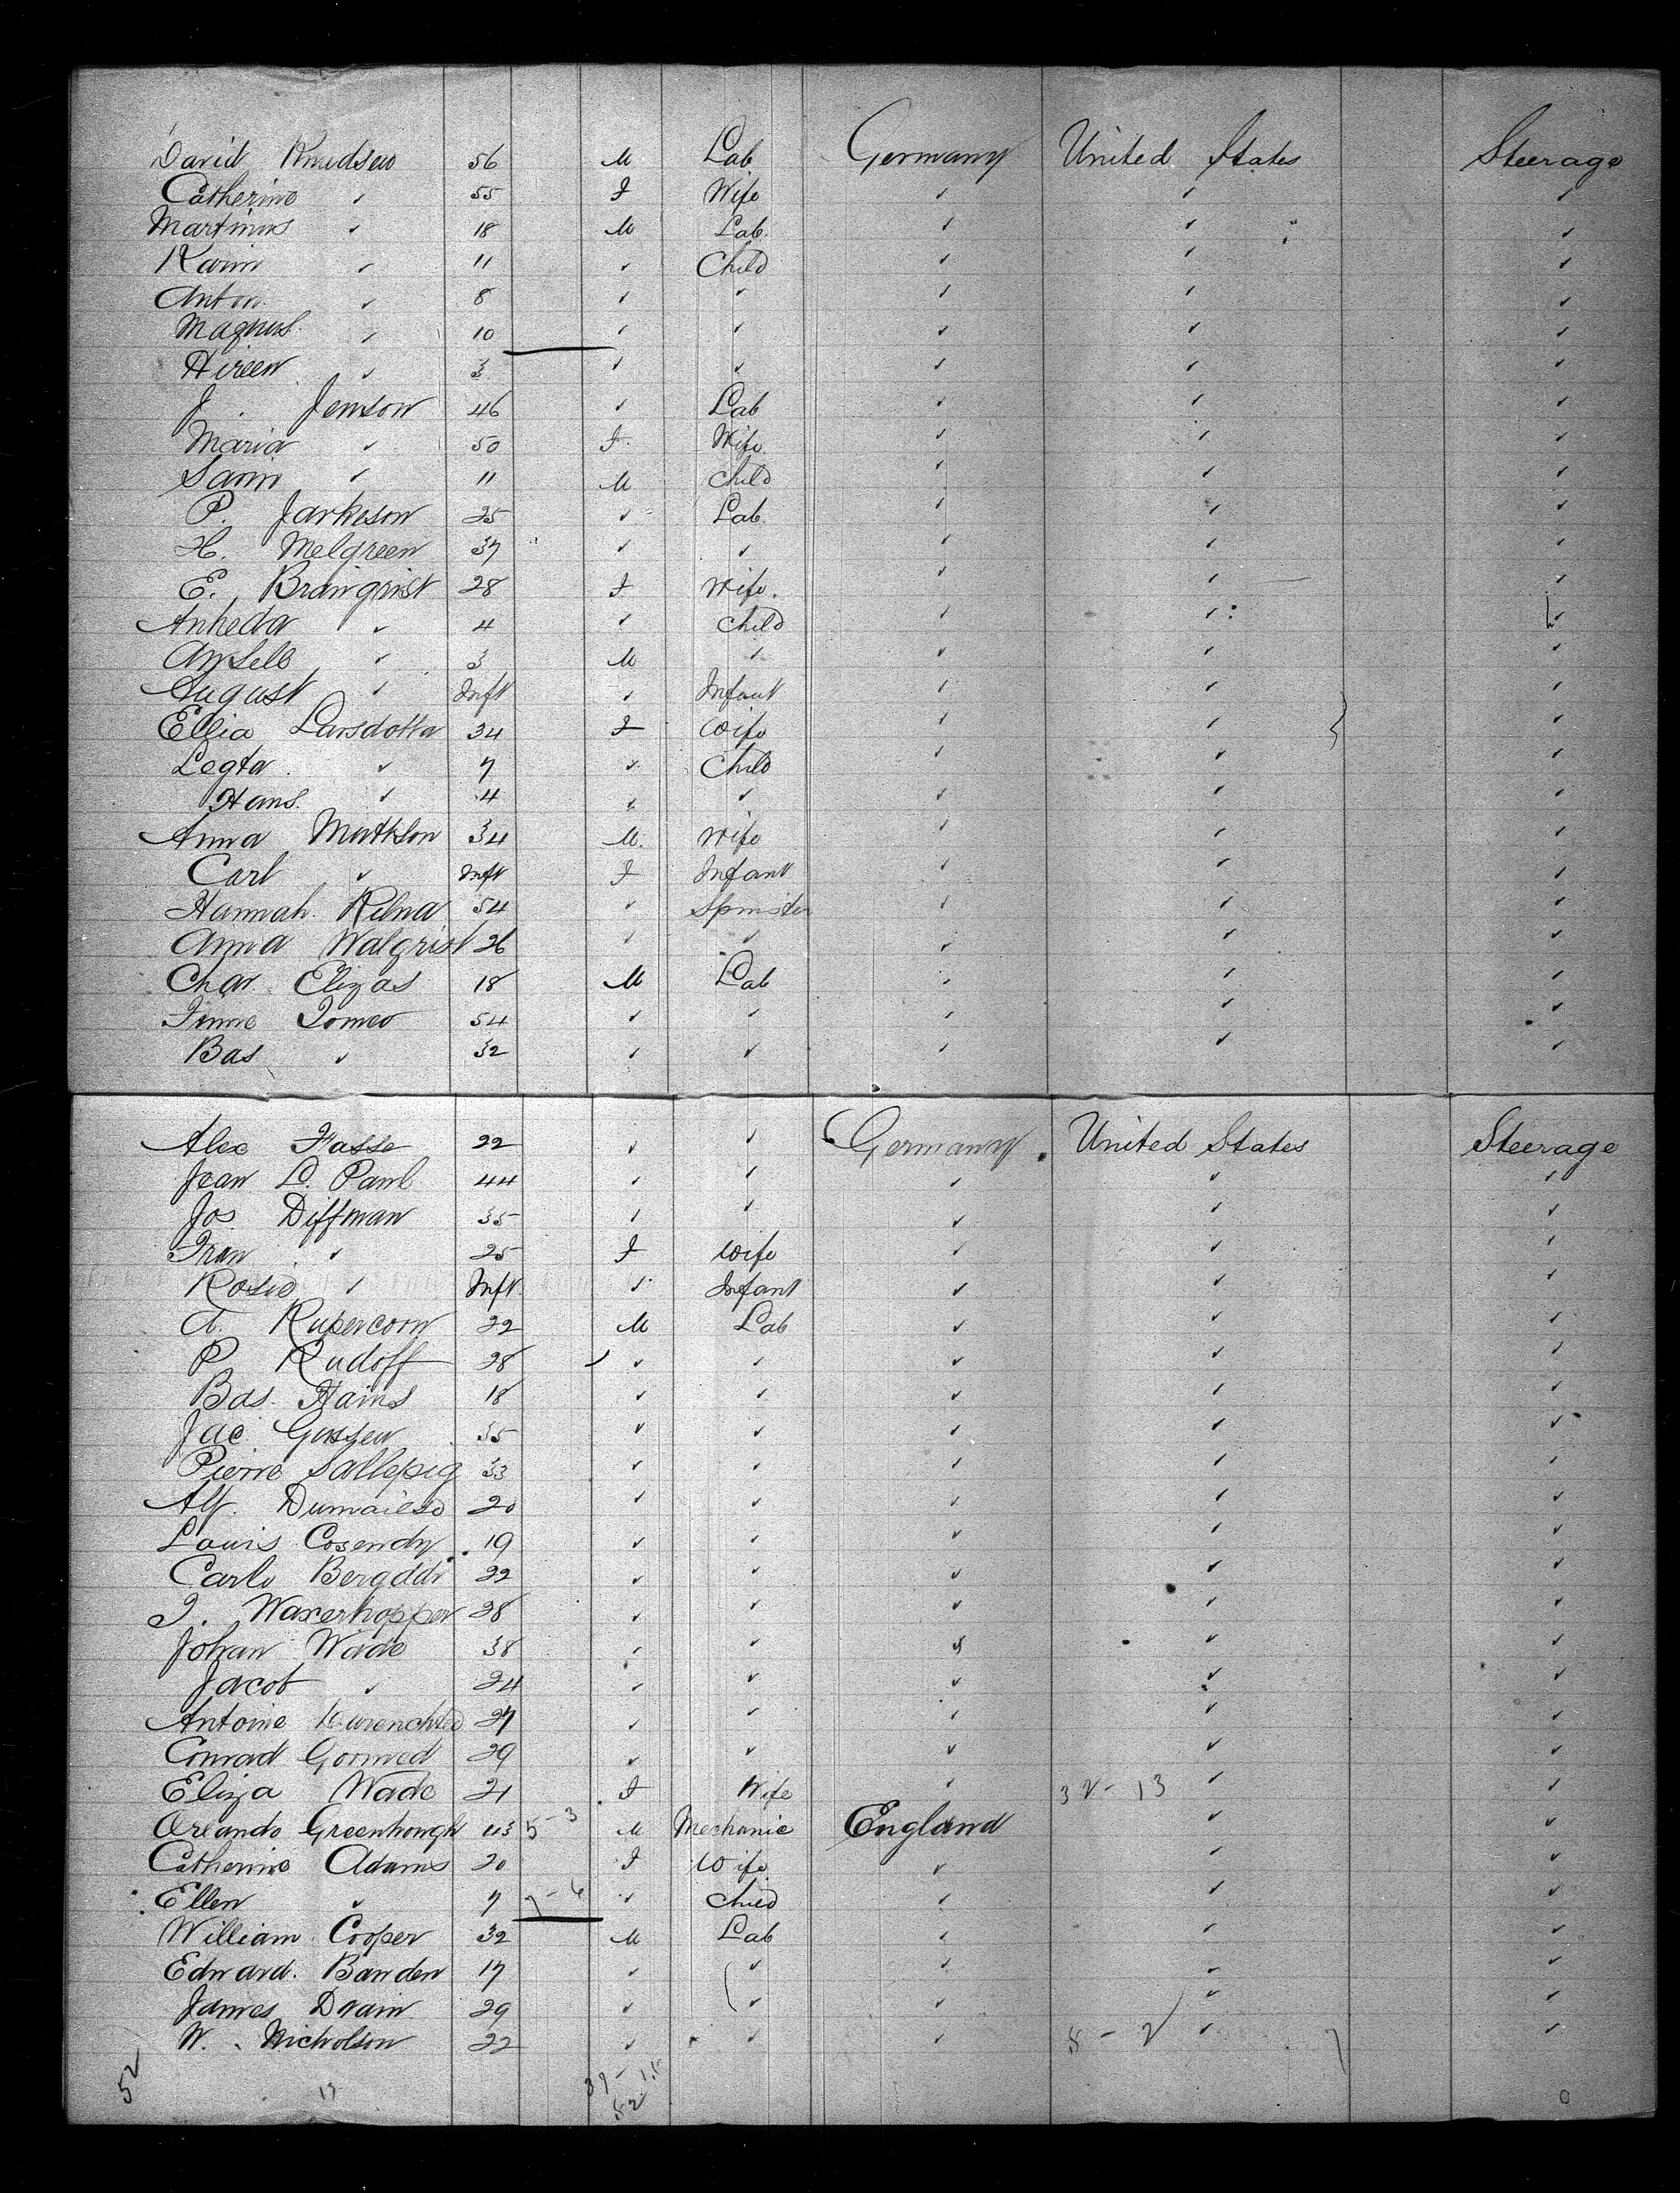 David Knudsen 56 M Lab Germany United States Steerage
Catherine ✓ 55 F Wife ✓ ✓ ✓
Martinus ✓ 18 M Lab. ✓ ✓ ✓
Karin ✓ 11 ✓ Child ✓ ✓ ✓
Anton ✓ 8 ✓ ✓ ✓ ✓ ✓
Magnus ✓ 10 ✓ ✓ ✓ ✓ ✓
Hireen ✓ 3 ✓ ✓ ✓ ✓ ✓
J. Jenson 46 ✓ Lab ✓ ✓ ✓
Maria ✓ 50 F. Wife ✓ ✓ ✓
Sarin ✓ 11 M Child ✓ ✓ ✓
P. Jarkeson 25 ✓ Lab. ✓ ✓ ✓
H. Melgreen 37 ✓ ✓ ✓ ✓ ✓
E. Branqrist 28 F Wife. ✓ ✓ ✓
Anheda ✓ 4 ✓ Child ✓ ✓ ✓
✓ 3 M ✓ ✓ ✓ ✓
August ✓ Inft ✓ Infant ✓ ✓ ✓
Ellia Larsdotta 34 F Wife ✓ ✓ ✓
Legta ✓ 7 ✓ Child ✓ ✓ ✓
Hans. ✓ 4 ✓ ✓ ✓ ✓ ✓
Anna Mathson 34 M. Wife ✓ ✓ ✓
Carl ✓ Inft F Infant ✓ ✓ ✓
Hannah. Kelna 54 ✓ Spinster ✓ ✓ ✓
Anna Walqrist 26 ✓ ✓ ✓ ✓ ✓
Char. Elizas 18 M Lab ✓ ✓ ✓
54 ✓ ✓ ✓ ✓ ✓
Bas ✓ 32 ✓ ✓ ✓ ✓ ✓
Alex Fasse 22 ✓ ✓ Germany United States Steerage
Jean L. Paul 44 ✓ ✓ ✓ ✓ ✓
Jos Diffman 35 ✓ ✓ ✓ ✓ ✓
Fran ✓ 25 F Wife ✓ ✓ ✓
Rosie ✓ Inft. ✓ Infant ✓ ✓ ✓
A. Rupercorn 22 M Lab ✓ ✓ ✓
P. Rudoff 28 ✓ ✓ ✓ ✓ ✓
Bas. Hains 18 ✓ ✓ ✓ ✓ ✓
Jac Gossen 35 ✓ ✓ ✓ ✓ ✓
Pierre Sallepig 33 ✓ ✓ ✓ ✓ ✓
Alf. 20 ✓ ✓ ✓ ✓ ✓
Louis Cosendy 19 ✓ ✓ ✓ ✓ ✓
Carlo Bergddi 22 ✓ ✓ ✓ ✓ ✓
Waxerhopper 28 ✓ ✓ ✓ ✓ ✓
Johan Wade 38 ✓ ✓ ✓ ✓ ✓
Jacob ✓ 24 ✓ ✓ ✓ ✓ ✓
Antoine 27 ✓ ✓ ✓ ✓ ✓
Conrad Gormed 29 ✓ ✓ ✓ ✓ ✓
Eliza Wade 21 F Wife ✓ 32-13 ✓ ✓
Orlando Greenhough 43 5-3 M Mechanic England ✓ ✓
Catherine Adams 20 F Wife ✓ ✓ ✓
Ellen ✓ 7 7-6 ✓ Child ✓ ✓ ✓
William Cooper 32 M Lab ✓ ✓ ✓
Edward. Banden 17 ✓ ✓ ✓ ✓ ✓
James Drain 29 ✓ ✓ ✓ ✓ ✓
W. Nicholson 22 ✓ ✓ ✓ 5-2 ✓ ✓
52 17 37-15 0
52